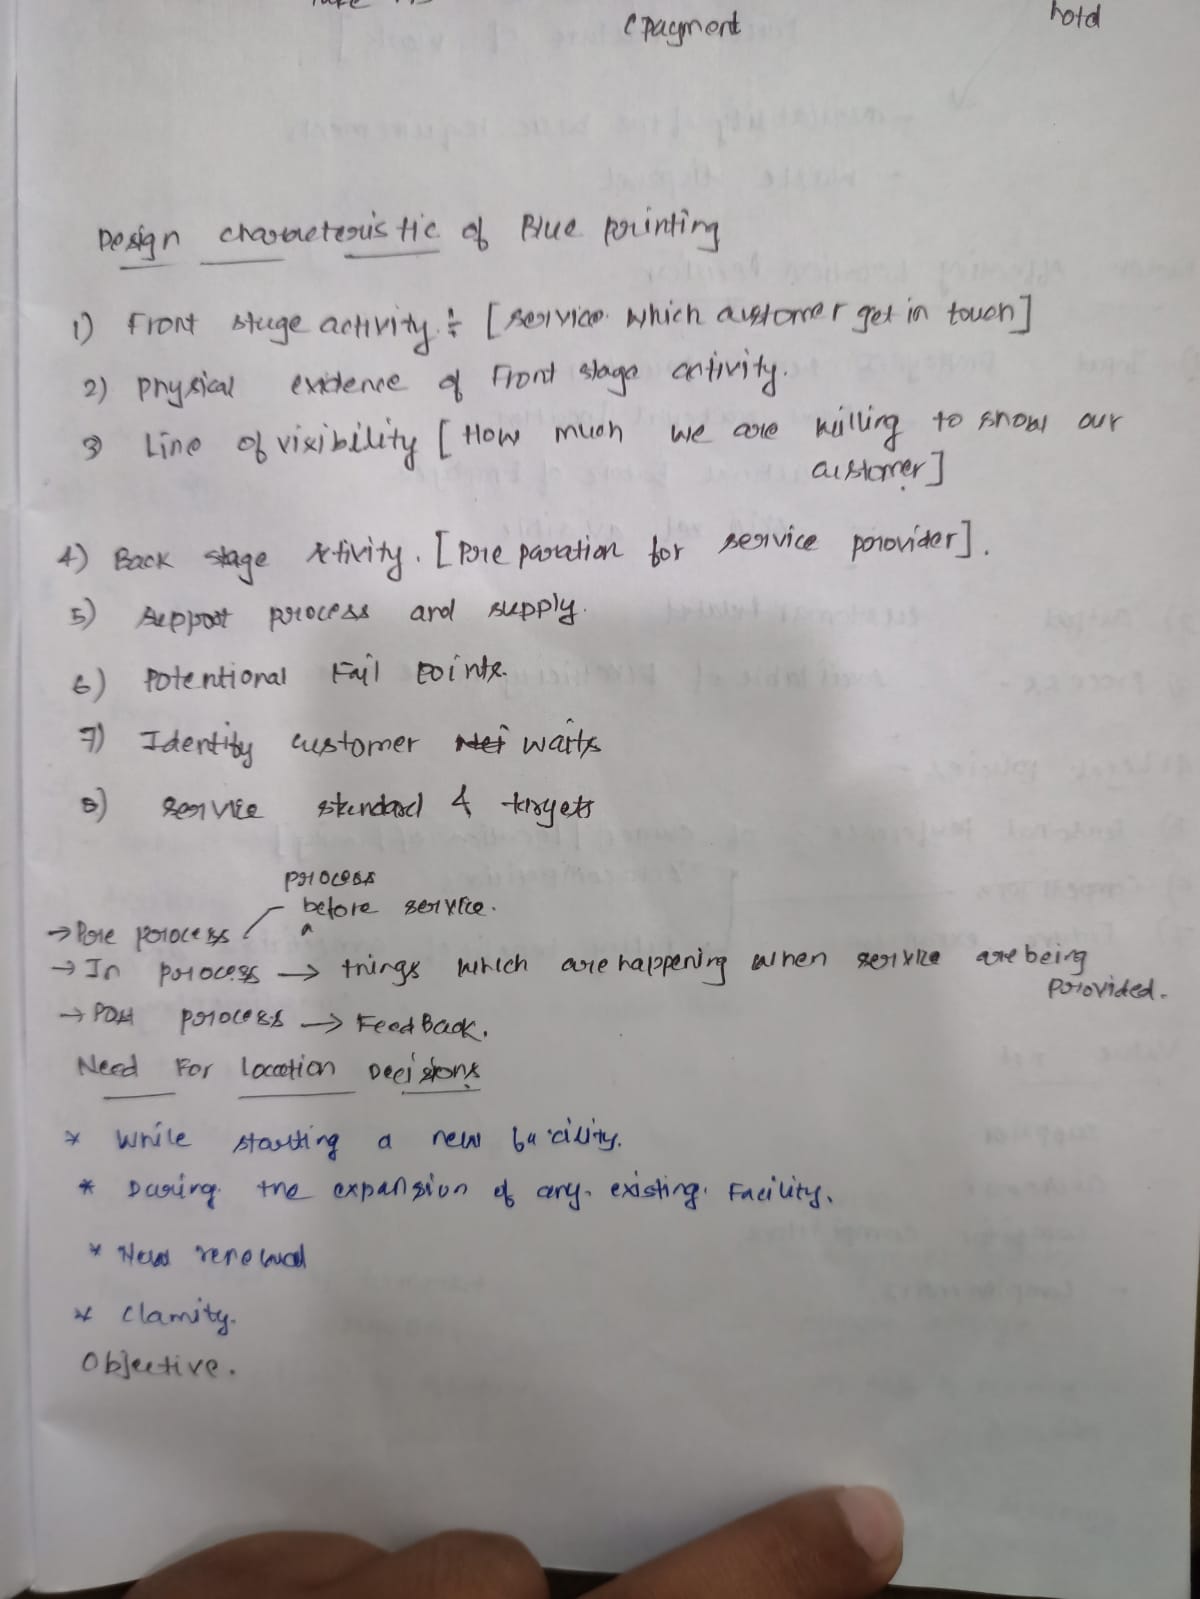 (payment hold
Design characteristic of Blue printing
1) Front stage activity ÷ [service which customer get in touch]
2) physical evidence of Front stage activity.
3 Line of visibility [How much we are willing to show our
customer]
4) Back stage Activity. [Pre paration for service provider].
5) Support process and supply.
6) Potentional Fail Points.
7) Identify customer waits
8) Service standard & targets
process
before service.
→ Pre process
→ In process → things which are happening when service are being
provided.
→ Post process → FeedBack.
Need For Location Decisions
* While starting a new facility.
* During the expansion of any existing Facility.
* New renewal
* Clamity.
Objective.